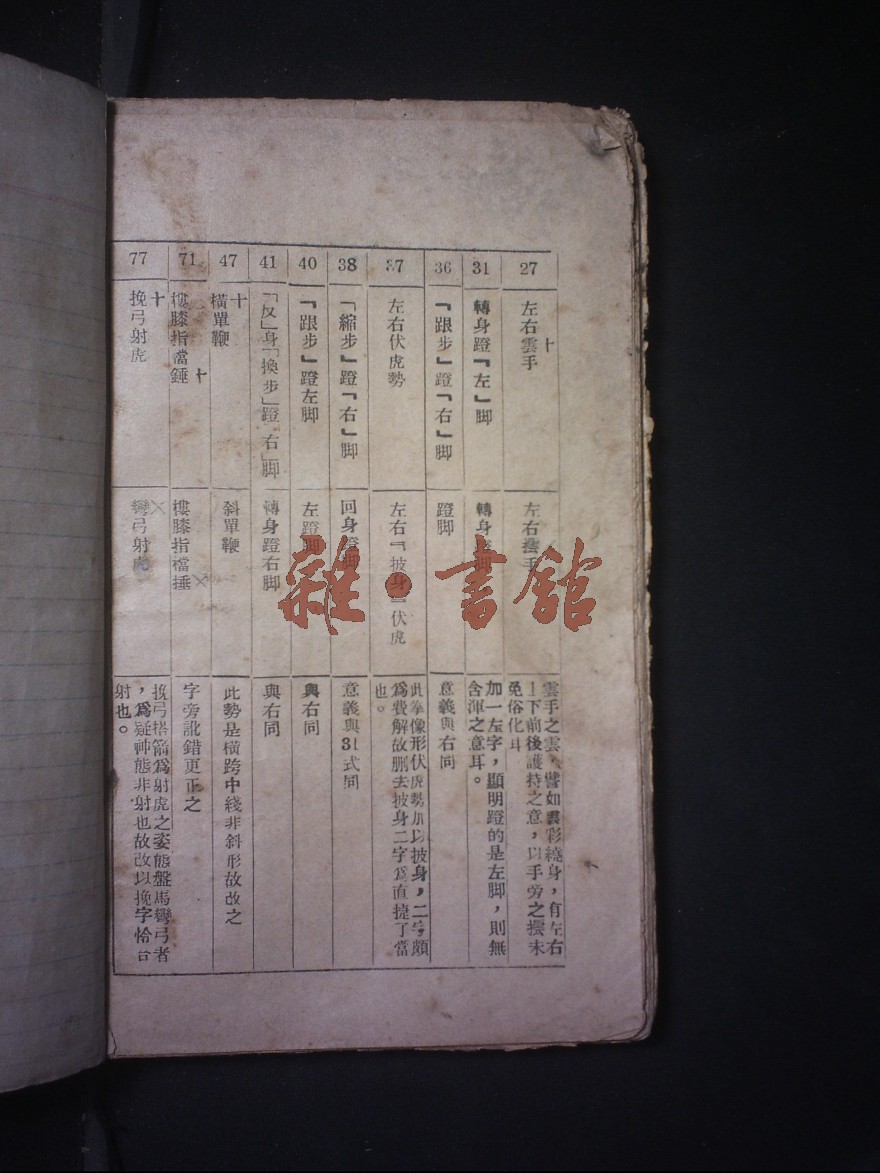 27
左右雲手
十
左右摆手
雲手之雲，譬如雲彩繞身，有左右
上下前後護持之意，以手旁之摆未
免俗化耳
31
轉身蹬『左』脚
轉身蹬脚
加一左字，顯明蹬的是左脚，則無
含渾之意耳。
36
『跟步』蹬『右』脚
蹬脚
意義與右同
37
左右伏虎勢
左右『披身』伏虎
此拳像形伏虎勢加以披身，二字頗
爲費解故删去披身二字爲直捷了當
也。
38
「縮步』蹬『右』脚
回身蹬脚
意義與31式同
40
『跟步』蹬左脚
左蹬脚
與右同
41
「反」身「換步」蹬「右」脚
轉身蹬右脚
與右同
47
十
橫單鞭
斜單鞭
此勢是橫跨中綫非斜形故改之
71
摟膝指襠錘
十
摟膝指襠捶
×
字旁訛錯更正之
77
十
挽弓射虎
×
彎弓射虎
挽弓搭箭爲射虎之姿態盤馬彎弓者
，爲疑神態非射也故改以挽字恰合
射也。
雜·書館